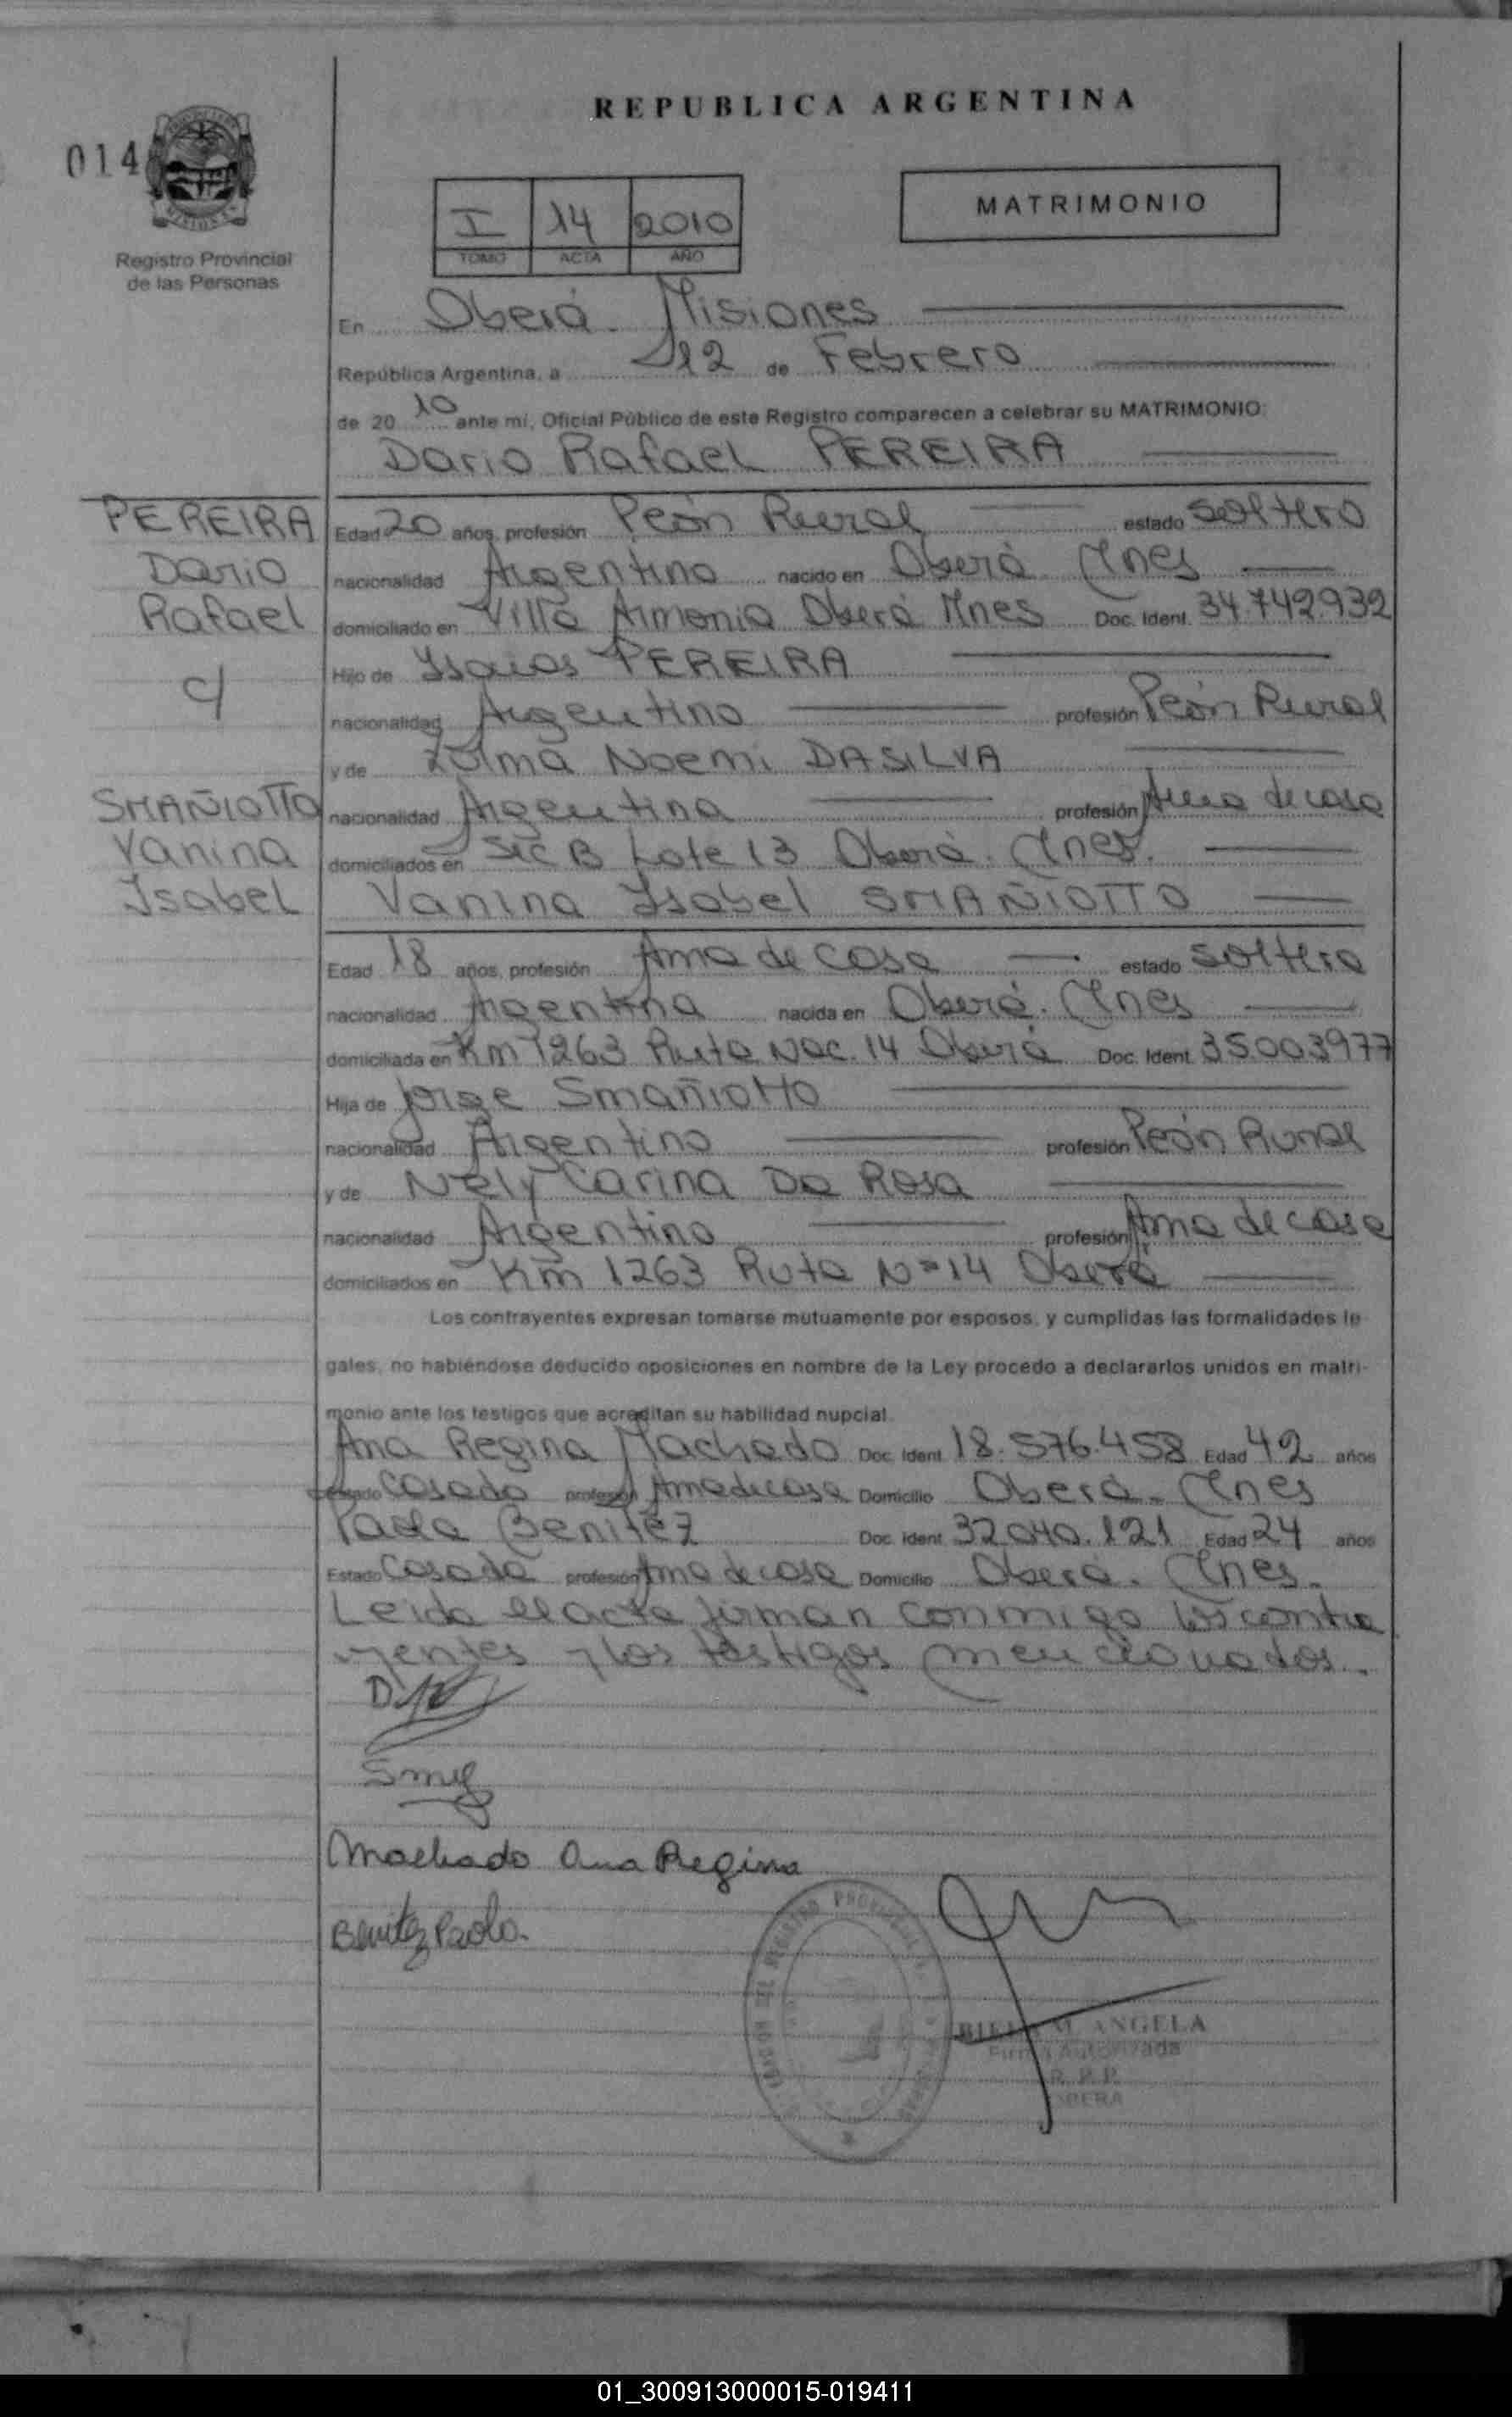 REPUBLICA ARGENTINA
014
Registro Provincial
de las Personas
I 14 2010
TOMO ACTA AÑO
MATRIMONIO
En Oberá - Misiones
República Argentina, a 12 de Febrero
de 2010 ante mí, Oficial Público de este Registro comparecen a celebrar su MATRIMONIO:
Dario Rafael PEREIRA
PEREIRA
Dario
Rafael
c/
SMAÑIOTTO
Vanina
Isabel
Edad 20 años, profesión Peón Rural estado soltero
nacionalidad Argentino nacido en Oberá Mnes
domiciliado en Villa Armonia Oberá Mnes Doc. Ident. 34.742.932
Hijo de Isaias PEREIRA
nacionalidad Argentino profesión Peón Rural
y de Zulma Noemi DASILVA
nacionalidad Argentina profesión Ama de casa
domiciliados en Sec B Lote 13 Oberá. Mnes.
Vanina Isabel SMAÑIOTTO
Edad 18 años, profesión Ama de casa estado soltera
nacionalidad Argentina nacida en Oberá. Mnes
domiciliada en Km 1263 Ruta Nac. 14 Oberá Doc. Ident. 35003977
Hija de Jorge Smañiotto
nacionalidad Argentino profesión Peón Rural
y de Nely Carina Da Rosa
nacionalidad Argentina profesión Ama de casa
domiciliados en Km 1263 Ruta Nº 14 Oberá
Los contrayentes expresan tomarse mutuamente por esposos, y cumplidas las formalidades le
gales, no habiéndose deducido oposiciones en nombre de la Ley procedo a declararlos unidos en matri-
monio ante los testigos que acreditan su habilidad nupcial.
Ana Regina Machado Doc. Ident. 18.576.458 Edad 42 años
Estado Casada profesión Ama de casa Domicilio Oberá - Mnes
Paola Benitez Doc. Ident. 32040.121 Edad 24 años
Estado Casada profesión Ama de casa Domicilio Oberá. Mnes.
Leida el acta firman conmigo los contra
yentes y los testigos mencionados.
Machado Ana Regina
Benitez Paola.
M. ANGELA
Firma Autorizada
R. P. P.
OBERA
01_300913000015-019411